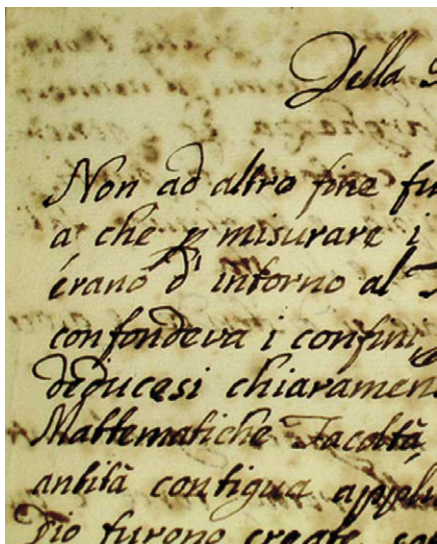 Della
Non ad altro fine fu
a che p misurare i
erano d'intorno al
confondeva i confini
deducesi chiaramen
Mattematiche Facoltà
antità contigua app
Dio furono create co